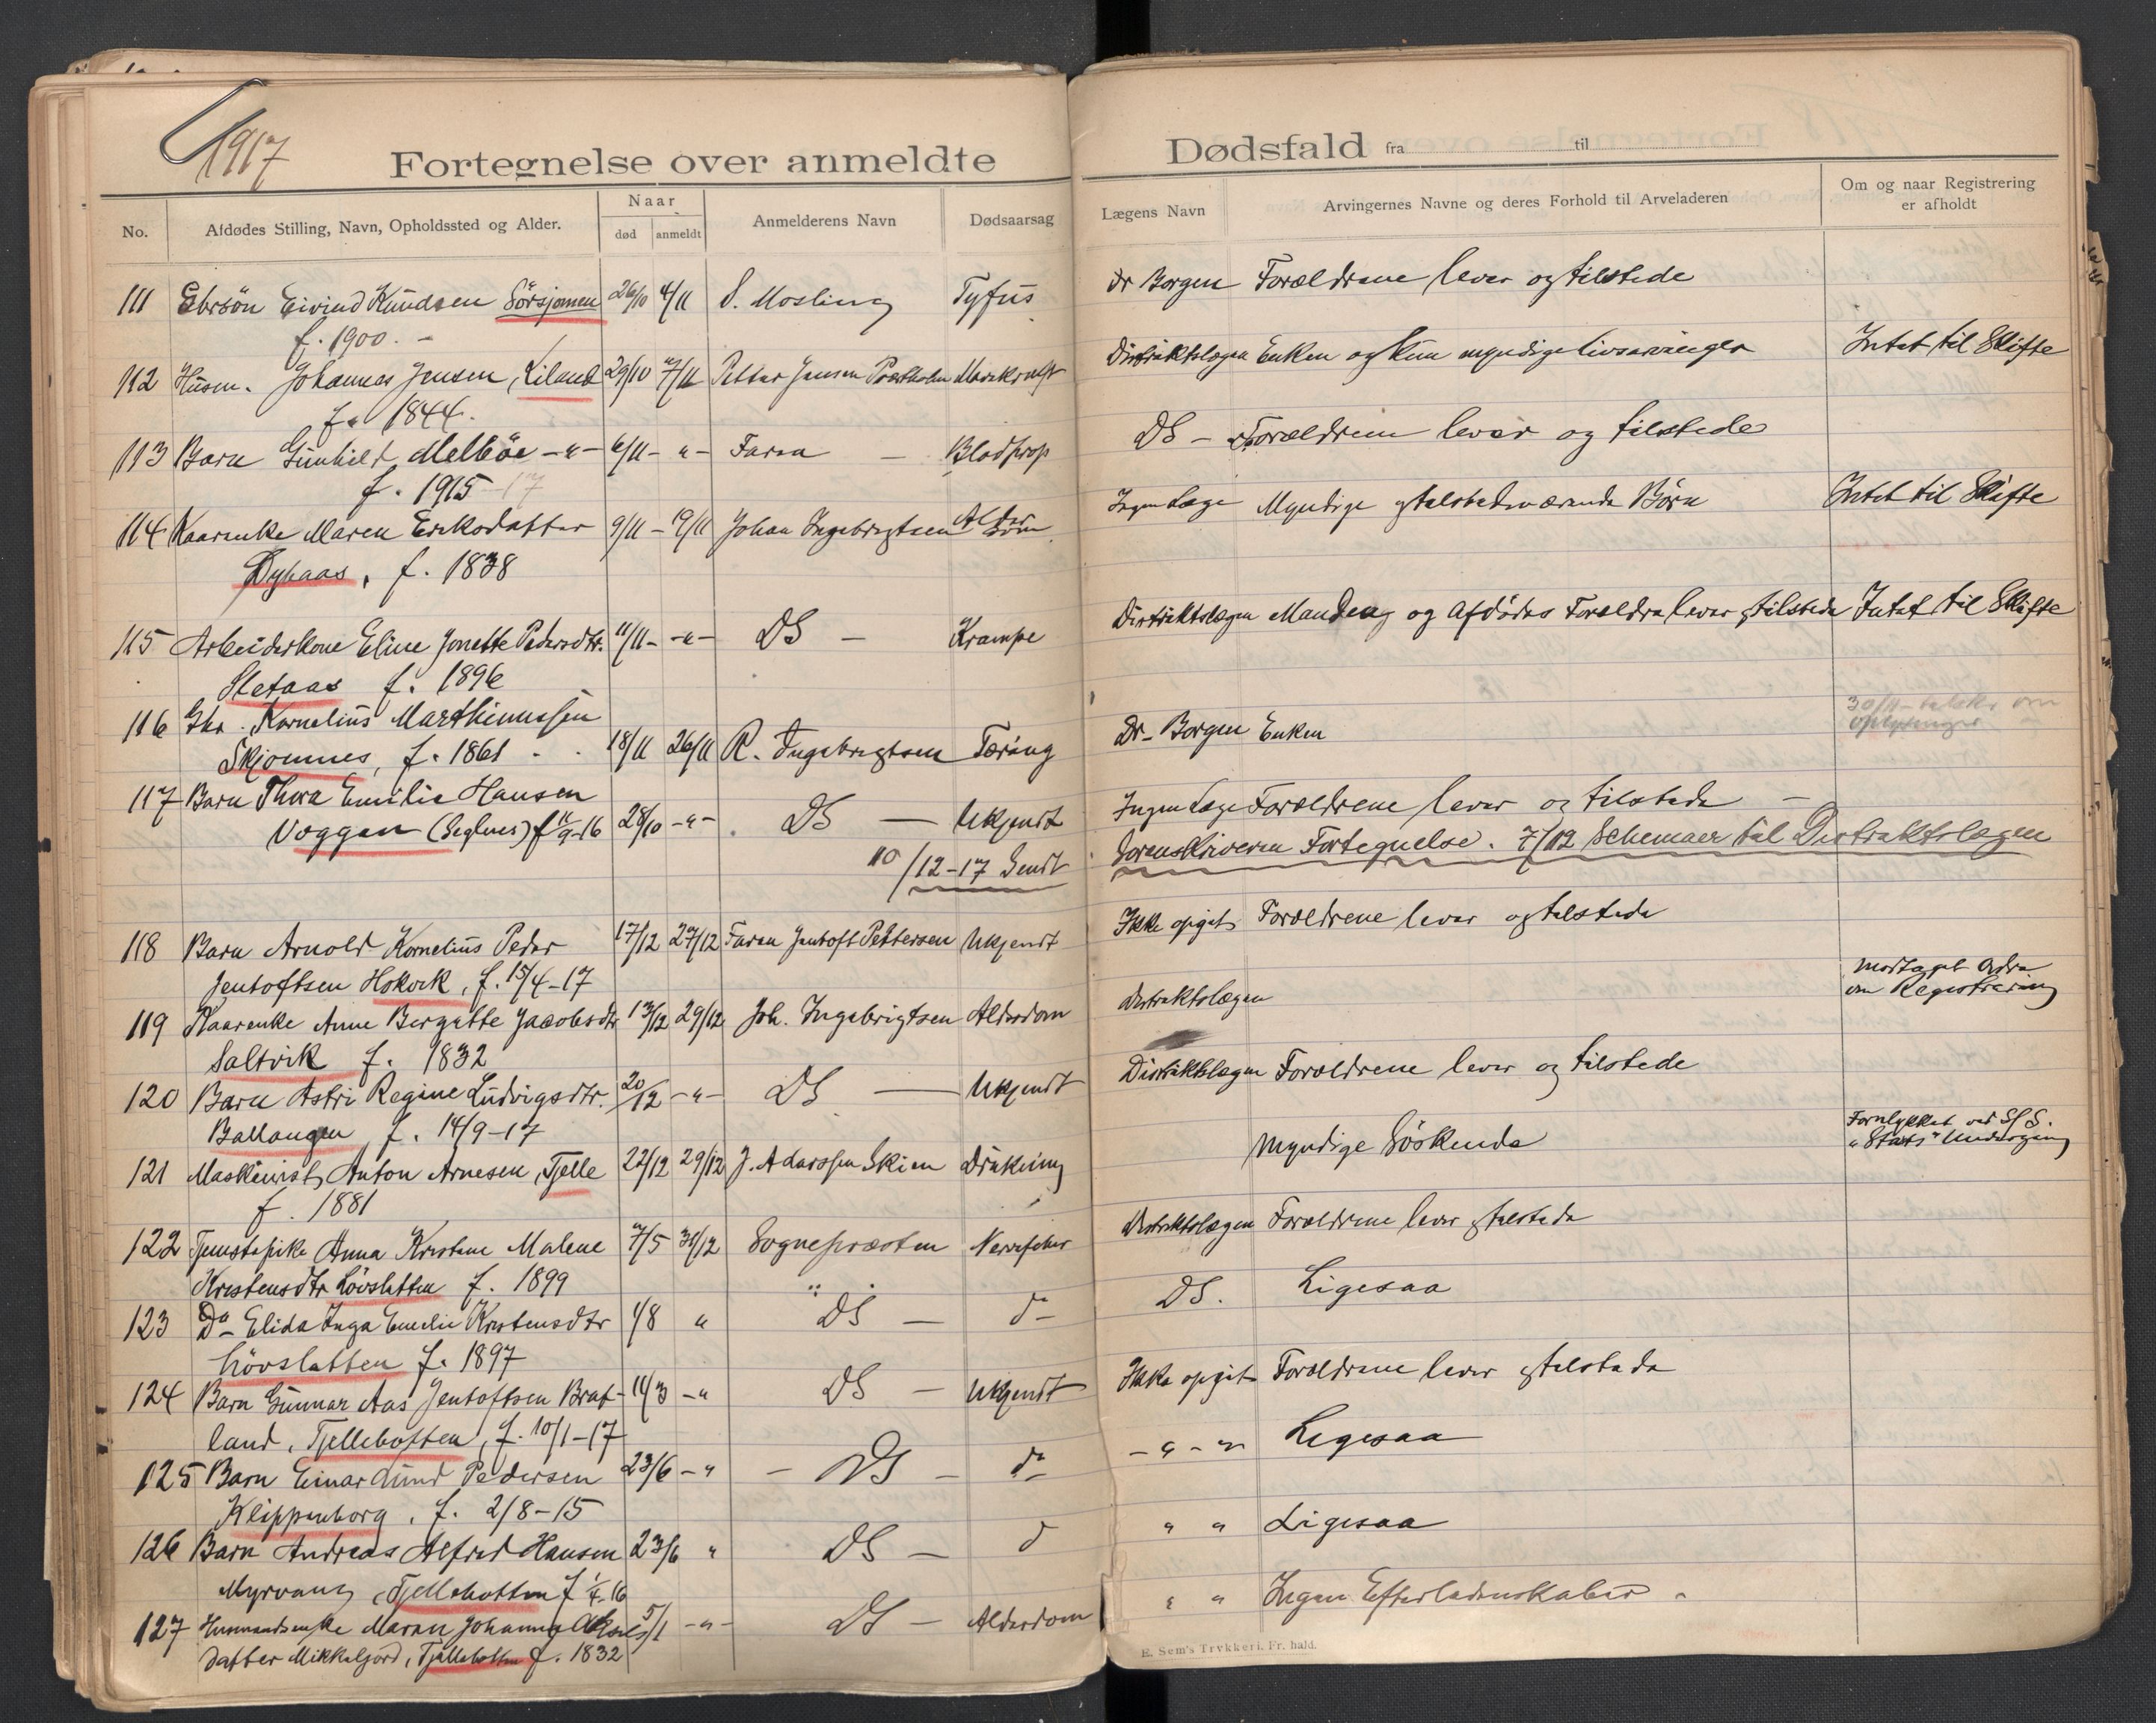 1917
Fortegnelse over anmeldte
Dødsfald fra til
No.
Afdødes Stilling, Navn, Opholdssted og Alder.
Naar
død anmeldt
Anmelderens Navn
Dødsaarsag
Lægens Navn
Arvingernes Navne og deres Forhold til Arveladeren
Om og naar Registrering
er afholdt
111 Ebrsön Eivind Knudsen Sörsjomen 26/10 4/11 S. Mosling Tyfus Dr Borgen Forældrene lever og tilstede
f. 1900. -
112 Husm. Johannes Jensen, Liland 29/10 7/11 Petter Jensen Prestholm Distriktslægen Enken og kun myndige livsarvinger Intet til Skifte
f. 1844.
113 Barn Gunhild Melböe -"- 6/11 - " - Faren - Blodprop DS - Forældrene lever og tilstede
f. 1915 - 17
114 Kaarenke Maren Eriksdatter 9/11 - 19/11 Johan Ingebrigtsen Alderdom Ingen Læge Myndige og tilstedeværende Börn Intet til Skifte
Dyhaas, f. 1838
115 Arbeiderkone Eline Jonette Pedersdtr. 11/11 - -"- DS - Krampe Distriktslægen Manden og Afdödes Forældre lever og tilstede Intet til Skifte
Sletaas f. 1896
116 Gbr. Kornelius Marthinussen
Skjomnes, f. 1861 18/11 26/11 R. Ingebrigtsen Tæring Dr. Borgen Enken 30/11 - om
oplysninger
117 Barn Thora Emilie Hansen
Voggen (Seglnes) f 11/9-16 28/10 -"- DS - Ukjendt Ingen Læge Forældrene lever og tilstede -
10/12-17 Sendt Sorenskriveren Fortegnelse. 7/12 Schemaer til Distriktslægen
118 Barn Arnold Kornelius Peder 17/12 27/12 Faren Jentoft Pettersen Ukjendt Ikke opgit Forældrene lever og tilstede
Jentoftsen Hokvik, f. 15/4-17
119 Kaarenke Anne Bergitte Jacobsdtr 13/12 29/12 Joh. Ingebrigtsen Alderdom Distriktslægen Modtaget Ordre
om Registrering
Saltvik f. 1832
120 Barn Astri Regine Ludvigsdtr. 20/12 -"- DS - Ukjendt Distriktslægen Forældrene lever og tilstede
Ballangen, f. 14/9-17
121 Maskinist Anton Arnesen, Tjelle 22/12 29/12 J. Skien Drukning Myndige Söskende Forulykket ved S/S.
"Stats" Undergang
f. 1881
122 Tjenestepike Anna Kristine Malene 7/5 31/12 Sognepræsten Nervefeber Distriktslægen Forældrene lever og tilstede
Kristensdtr Lövsletten f. 1899
123 Do - Elida Inga Emelie Kristensdtr 4/8 " DS - do - DS. Ligesaa
Lövsletten f. 1897
124 Barn Gunnar Aas Jentoftsen Brat- 11/3 -" DS - Ukjendt Ikke opgit Forældrene lever og tilstede
land, Tjellebotten, f. 10/1-17
125 Barn Einar Lund Pedersen 23/6 -" - DS - do - " - " Ligesaa
Klippenborg, f. 2/8-15
126 Barn Andreas Alfred Hansen 23/6 " DS - d " " Ligesaa
Myrvang, Tjellebotten f 1/4-16
127 Husmandsenke Maren Johanna Aksels 5/1 -"- DS - Alderdom " " Ingen Efterladenskaber -
datter Mikkeljord, Tjellebotten f. 1832
E. Sem's Trykkeri, Fr. hald.